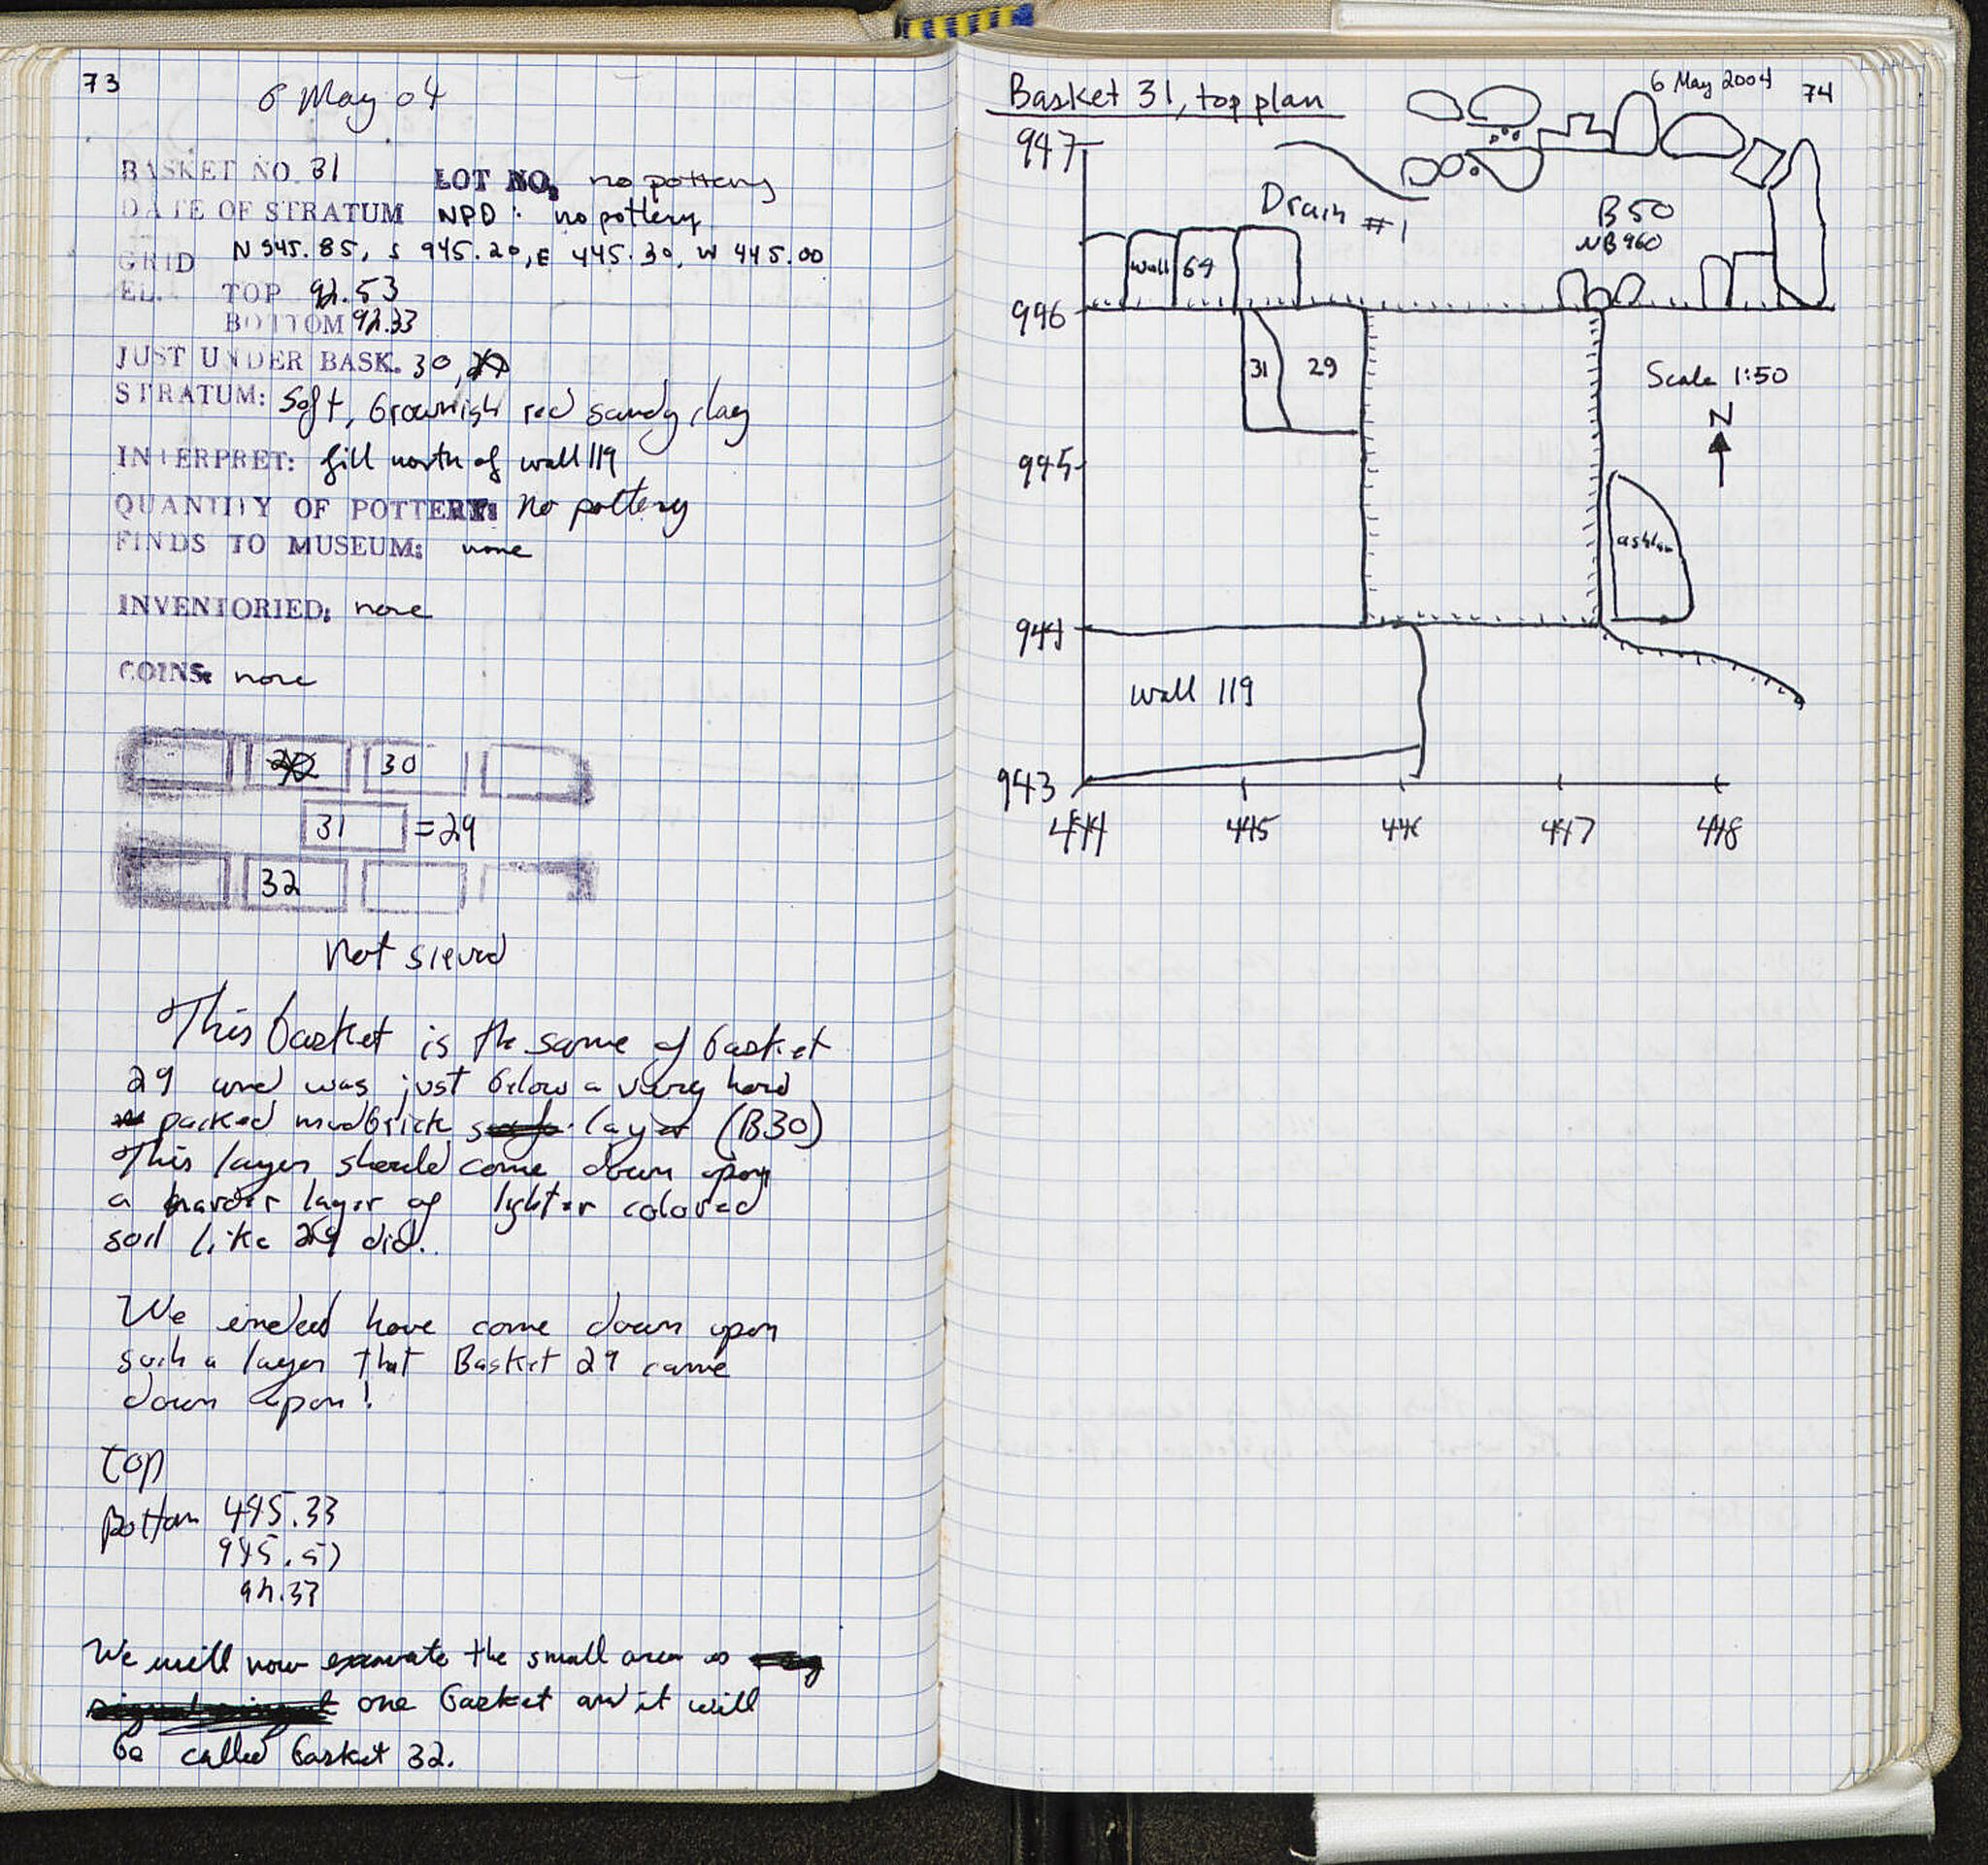 73
6 May 04
BASKET NO. 31 LOT NO. no pottery
DATE OF STRATUM NPD: no pottery
GRID N 945.85, S 945.20, E 445.30, W 445.00
EL. TOP 92.53
BOTTOM 92.33
JUST UNDER BASK. 30,
STRATUM: Soft, brownish red sandy clay
INTERPRET: fill north of wall 119
QUANTITY OF POTTERY: No pottery
FINDS TO MUSEUM: none
INVENTORIED: none
COINS: none
30
31 = 29
32
Not sieved
This basket is the same of basket
29 and was just below a very hard
packed mudbrick layer (B30)
This layer should come down upon
a harder layer of lighter colored
soil like 29 did.
We indeed have come down upon
such a layer that Basket 29 came
down upon!
Top
Bottom 445.33
945.57
92.33
We will now excavate the small area as
one basket and it will
be called basket 32.
Basket 31, top plan
6 May 2004
74
947
Drain #1
B 50
NB 960
wall 69
946
31
29
Scale 1:50
N
945
ashlar
944
wall 119
943
444 445 446 447 448